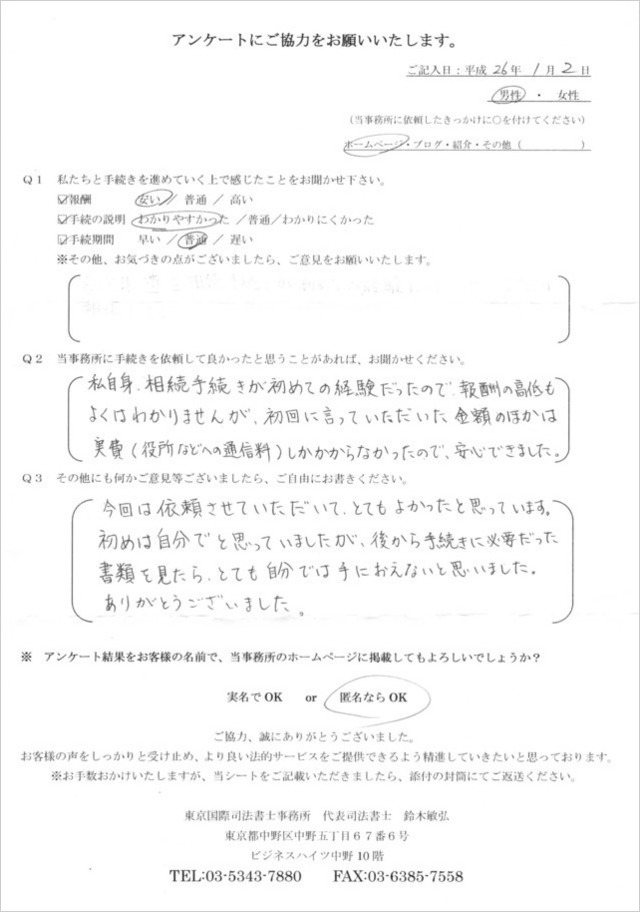 アンケートにご協力をお願いいたします。
ご記入日：平成 26年 1月 2日
男性 ・ 女性
（当事務所に依頼したきっかけに○を付けてください）
ホームページ・ブログ・紹介・その他（　　　　）
Q１ 私たちと手続きを進めていく上で感じたことをお聞かせ下さい。
☑報酬　安い ／ 普通 ／ 高い
☑手続の説明　わかりやすかった ／普通／わかりにくかった
☑手続期間　早い ／ 普通 ／ 遅い
※その他、お気づきの点がございましたら、ご意見をお願いいたします。
Q２ 当事務所に手続きを依頼して良かったと思うことがあれば、お聞かせください。
私自身、相続手続きが初めての経験だったので、報酬の高低も
よくはわかりませんが、初回に言っていただいた金額のほかは
実費（役所などへの通信料）しかかからなかったので、安心できました。
Q３ その他にも何かご意見等ございましたら、ご自由にお書きください。
今回は依頼させていただいて、とてもよかったと思っています。
初めは自分でと思っていましたが、後から手続きに必要だった
書類を見たら、とても自分では手におえないと思いました。
ありがとうございました。
※ アンケート結果をお客様の名前で、当事務所のホームページに掲載してもよろしいでしょうか？
実名でOK　or　匿名ならOK
ご協力、誠にありがとうございました。
お客様の声をしっかりと受け止め、より良い法的サービスをご提供できるよう精進していきたいと思っております。
※お手数おかけいたしますが、当シートをご記載いただきましたら、添付の封筒にてご返送ください。
東京国際司法書士事務所　代表司法書士　鈴木敏弘
東京都中野区中野五丁目６７番６号
ビジネスハイツ中野10階
TEL:03-5343-7880　FAX:03-6385-7558